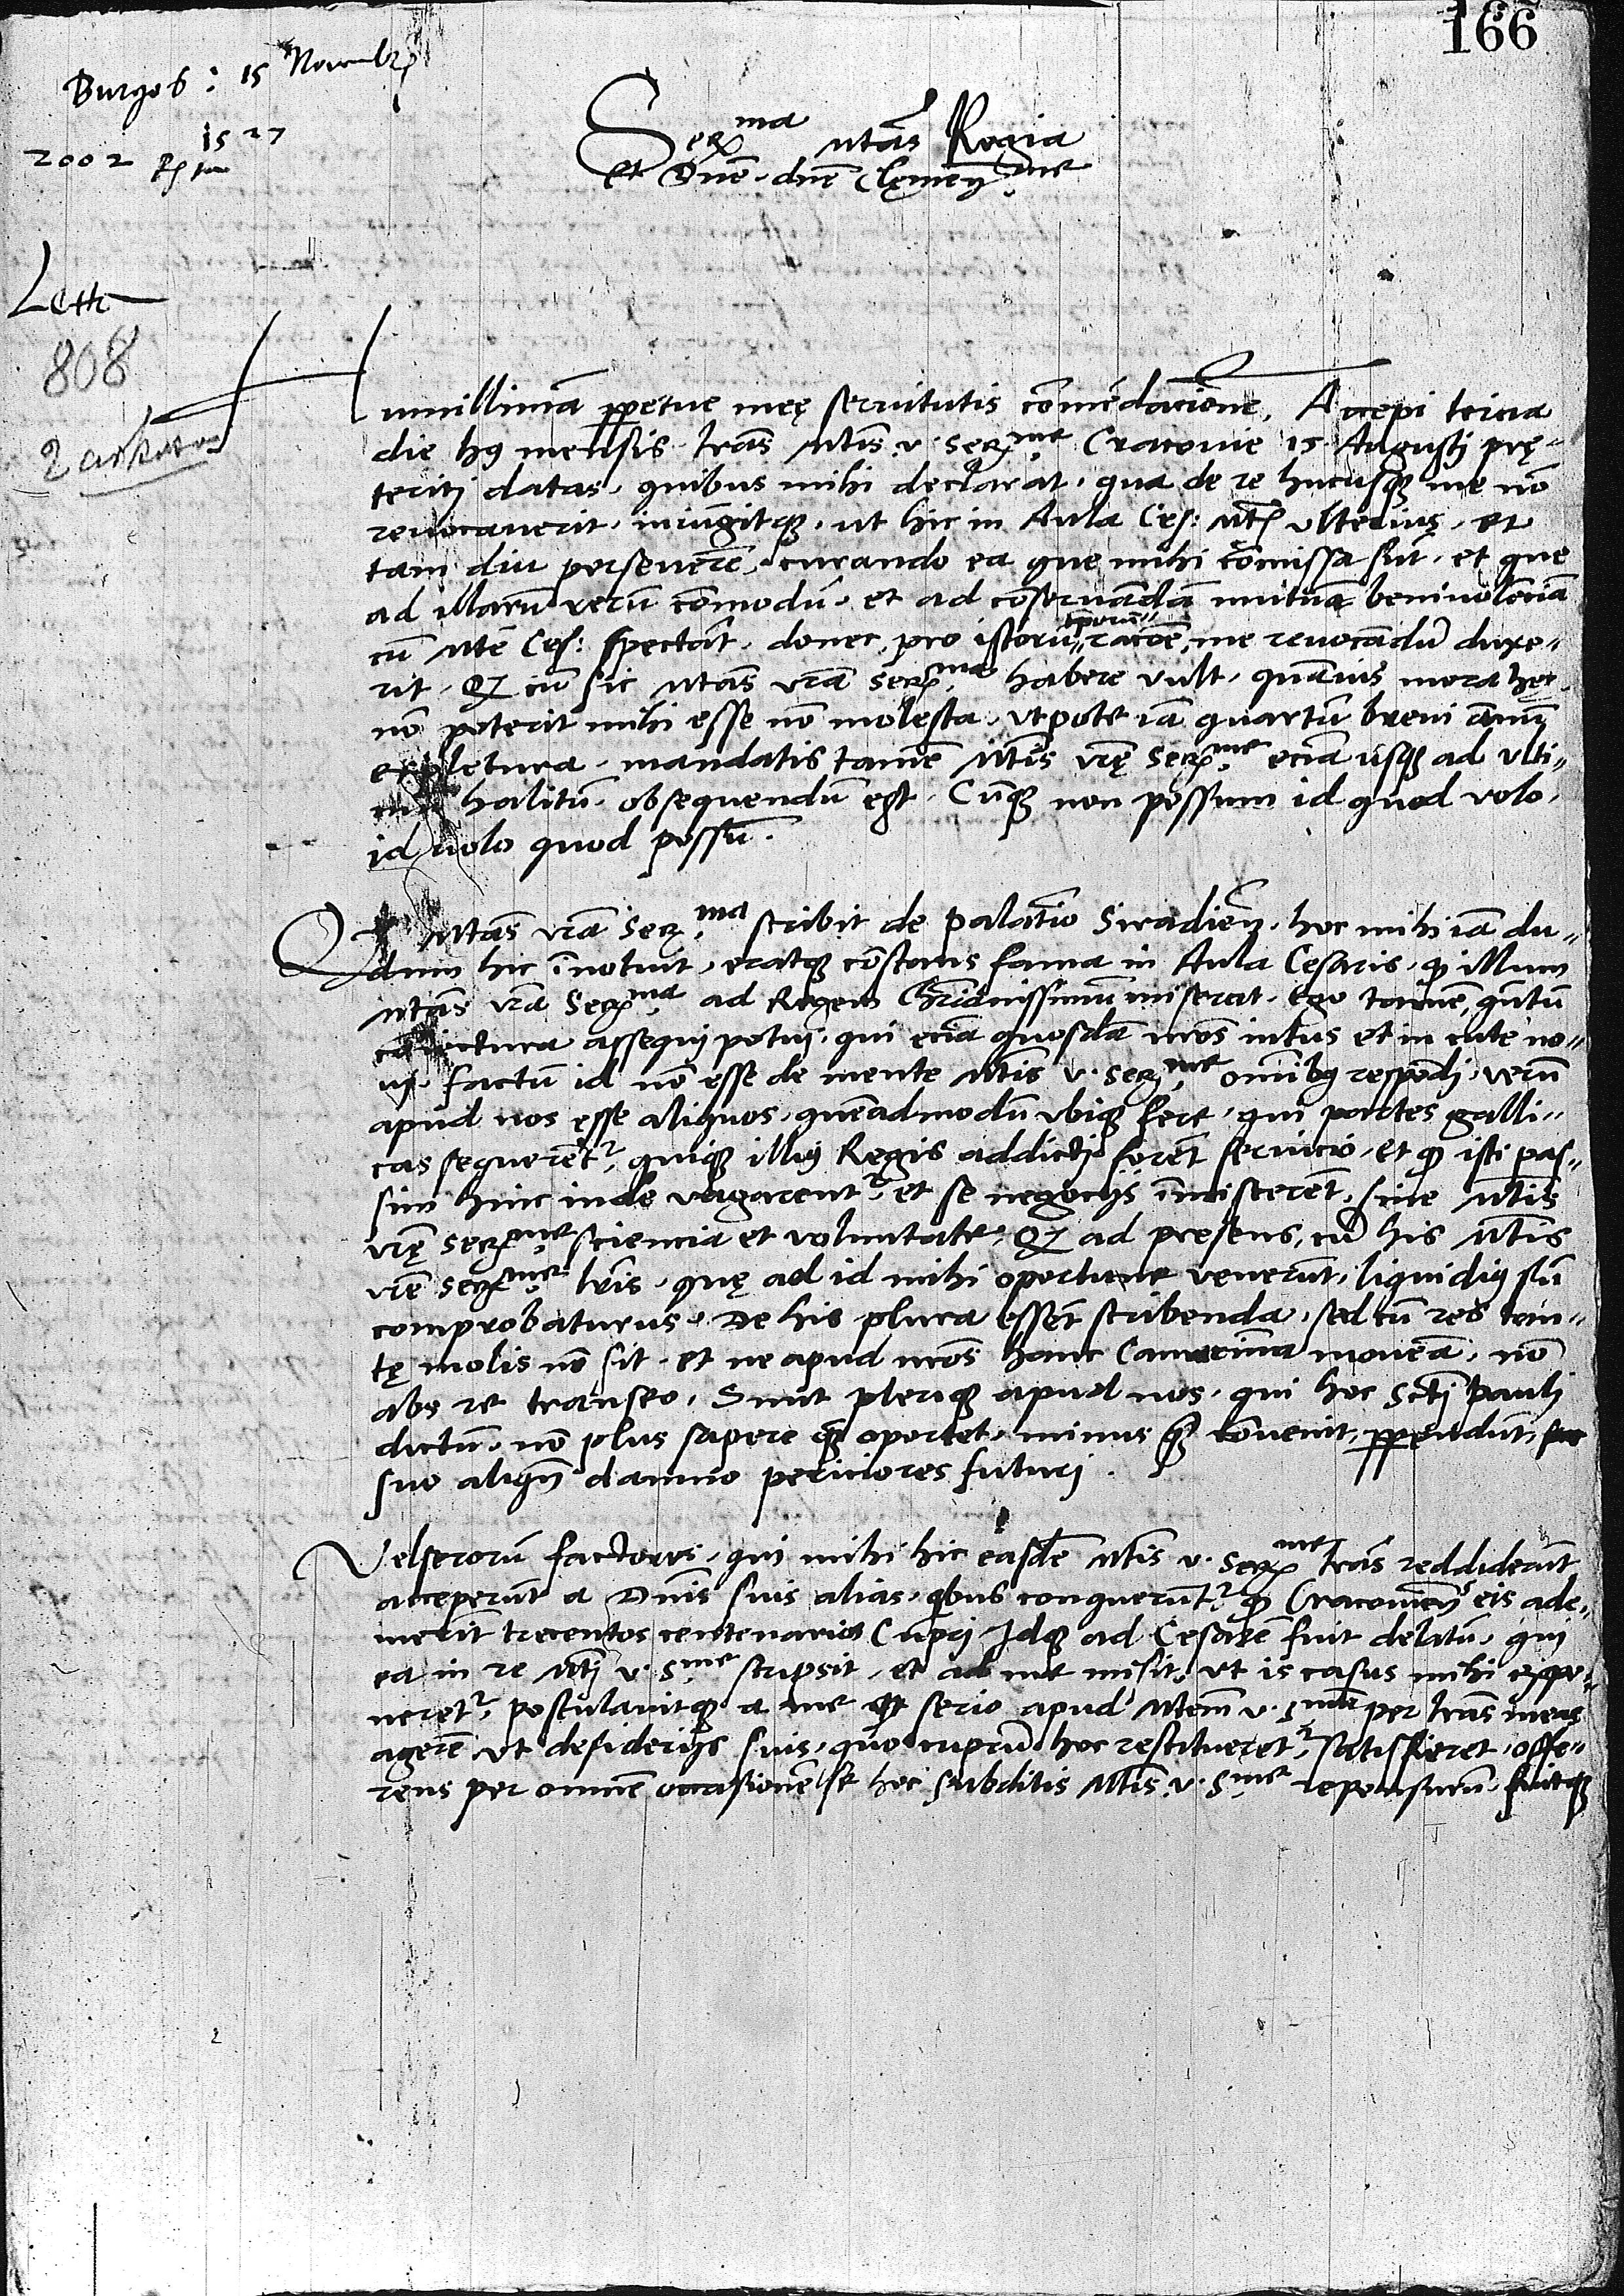 166
Burgos: 15 Novembr
1527
2002
Lett
808
Serma Mtas Regia
et Dne dne Clemenme
Humillimã perpetue meę servitutis cõmẽdacionẽ. Accepi tercia
die hq mensis lrãs Mtis v. Serme Cracovie 15 Augustj prę-
teritj datas, quibus mihi declarat, qua de re hucusq me nõ
revocaverit, iniũgitq, ut hic in Aula Ces: Mtis ulterius, et
tam diu perseverẽ, curando ea que mihi cõmissa sũt, et que
ad illarũ rerũ cõmodũ, et ad cõservãdã mutuã benivolẽciã
cũ Mte Ces: spectãt, donec pro istorũ tporũ racoẽ, me revocãdũ duxe-
rit. Qz cũ sic Mtas vrã Serma habere vult, quãvis mora hec
nõ poterit mihi esse nõ molesta, utpote iã quartũ brevi ãnũ
expletura, mandatis tamẽ Mtis vrę Serme eciã usq ad ulti-
mũ halitũ obsequendũ est. Cũq non possum id quod volo,
id volo quod possũ.
Qz Mtas vrã Serma scribit de palatio Siradien, hoc mihi iã du-
dum hic ĩnotuit, eratq cõstans fama in Aula Cesaris, q illum
Mtas vrã Serma ad Regem Christianissimũ miserat. Ego tamẽ, qntũ
coniectura assequj potuj, qui eciã quosdã nrõs intus et in cute no-
vj, factũ id nõ esse de mente Mtis v. Serme omĩbq respondj, verũ
apud nos esse aliquos, quẽadmodũ ubiq fere, qui partes galli-
cas sequerẽtr, quiq illiq Regis addictj forẽt servicio, et q isti pas-
sim hinc inde vagarentr, et se negocijs ĩmiscerẽt, sine Mtis
vrę Serme sciencia et voluntate. Qz ad presens, cũ his Mtis
vrẽ Serme lris, quę ad id mihi oportune venerũt, liquidiq sũ
comprobaturus. De his plura essẽt scribenda, sed cũ res tan-
tę molis nõ sit, et ne apud nrõs hanc Camarinã moveã, nõ
abs re transeo. Sunt pleriq apud nos, qui hoc Sctj Paulj
dictũ, nõ plus sapere q̃ oportet, minus q̃ cõvenit, perpendũt,
suo aliqñ damno periciores futurj.
Velserorũ factores, qui mihi hic easdẽ Mtis v. Serme lrãs reddiderũt
acceperũt a Dnis suis alias, qbus conquerũtr, q Cracovien eis ade-
merĩt trecentos centenarios Cuprj. Idq ad Cesarẽ fuit delatũ, qui
ea in re Mtj v. Sme scripsit, et ad me misit, ut is casus mihi expo-
neretr, postulavitq a me ut serio apud Mtem v. Smã per lrãs meas
agerẽ ut desiderijs suis, quo cuprũ hoc restituerẽtr, satisfieret, offe-
rens per omnẽ occasionẽ se hoc subditis Mtis v. Sme repensurũ, fuitq